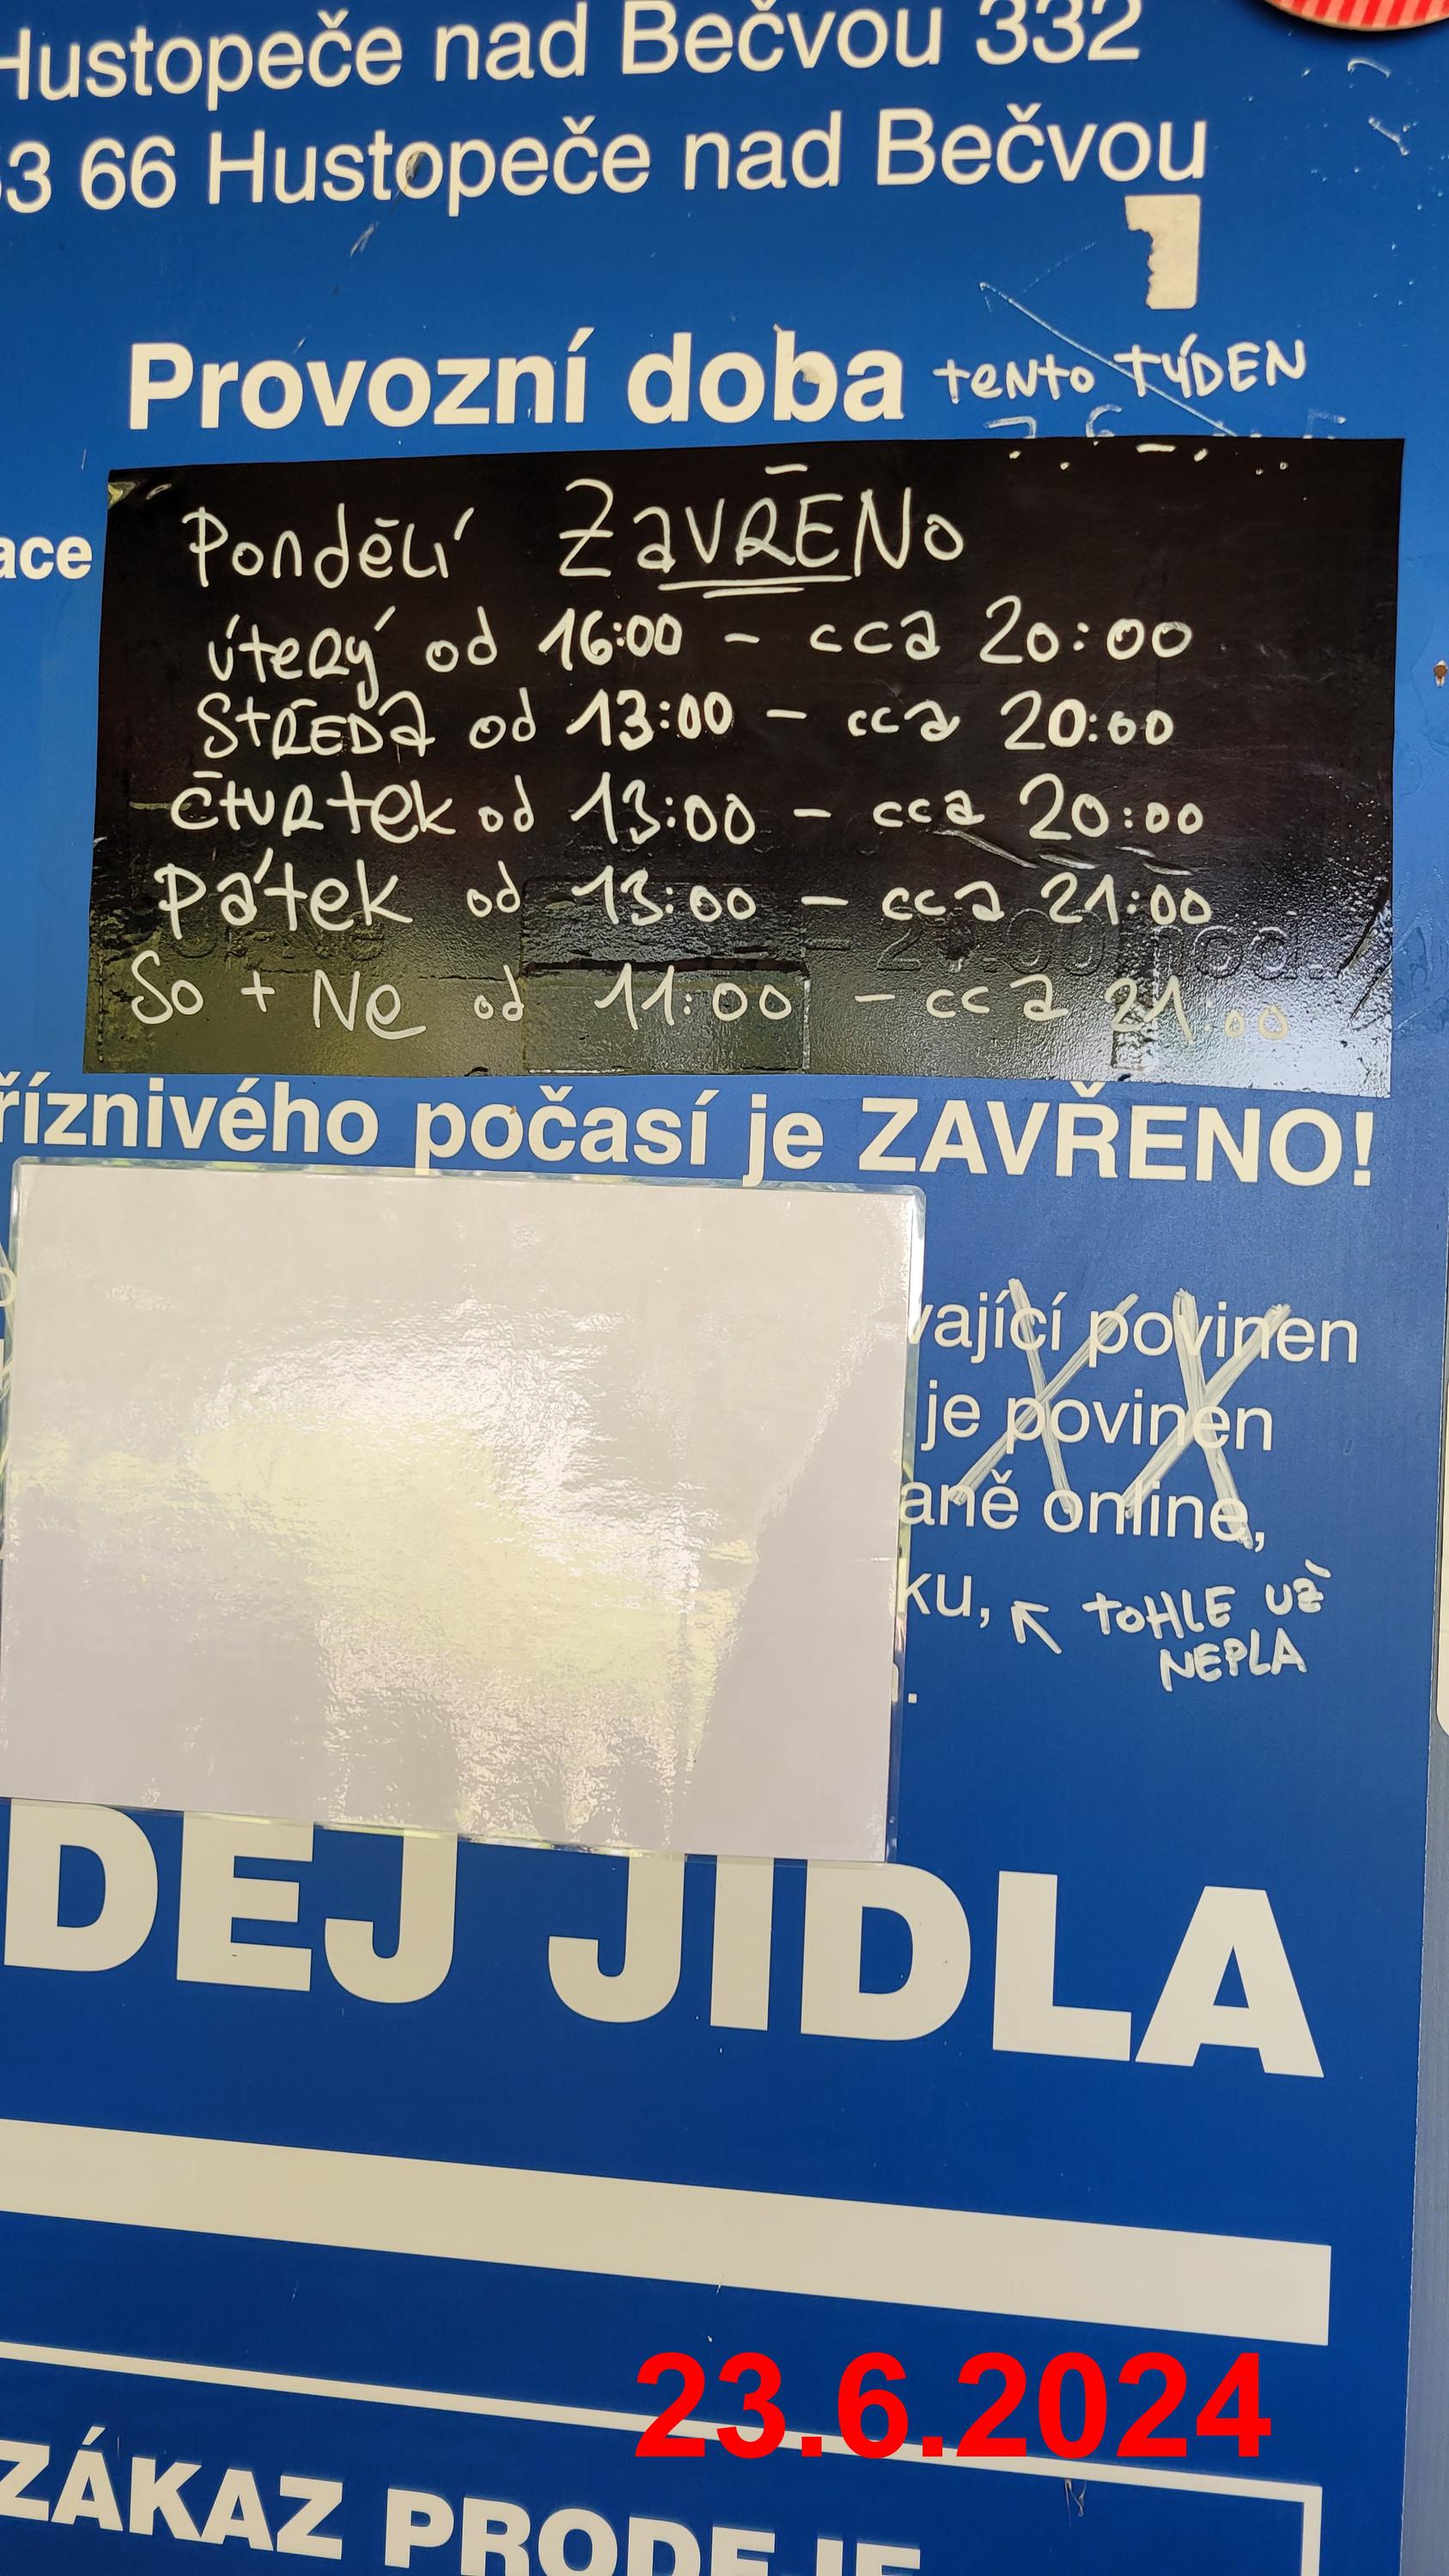 Hustopeče nad Bečvou 332
3 66 Hustopeče nad Bečvou
Provozní doba tento TÝDEN
ace
Pondělí ZavŘENo
úterý od 16:00 - cca 20:00
STŘEDA od 13:00 - cca 20:00
čtvrtek od 13:00 - cca 20:00
Pátek od 13:00 - cca 21:00
So + Ne od 11:00 - cca 21:00
říznivého počasí je ZAVŘENO!
vající povinen
je povinen
aně online,
ku, ↖ toHLE už
NEPLA
DEJ JIDLA
23.6.2024
ZÁKAZ PRODEJE